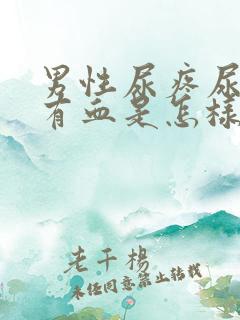 男性尿疼尿
有血是怎样
老干杨
未经同意禁止转载